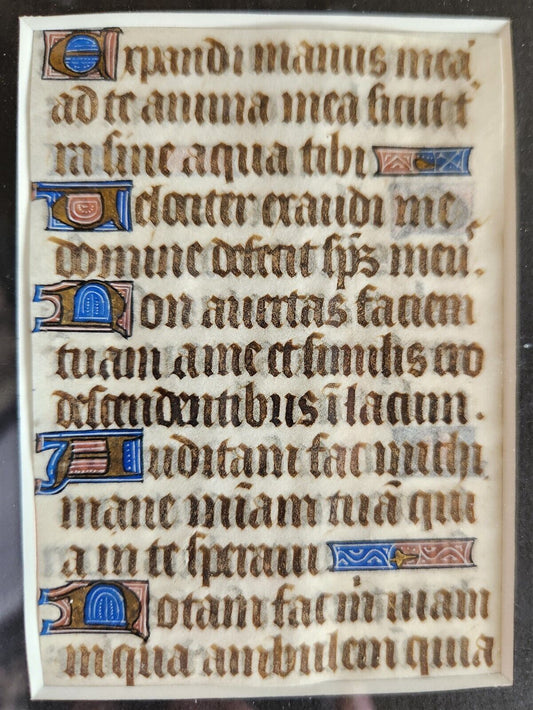 Expandi manus mea
ad te anima mea sicut t
ra sine aqua tibi
Velociter exaudi me
domine defecit sp̄s meu.
Non auertas faciem
tuam a me et similis ero
descendentibus ī lacum.
Auditam fac michi
mane mīam tuā qui
a in te speraui
Notam fac m̄ uiam
in qua ambulem quia